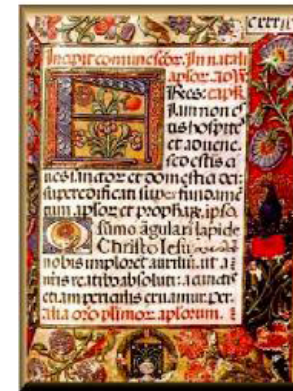 Incipit comune scõr. In natali
aplor
Jam non e
tis hospites
et aduene.
sed estis ci
ues sanctor et domestici dei:
superedificati super fundame
tum aplor et prophetar, ipso
sũmo angulari lapide
Christo Iesu
nobis imploret auxiliũ: ut a
reatibus absoluti: a cunctis
etiam periculis eruamur: per.
alia oro plimor aplorum.